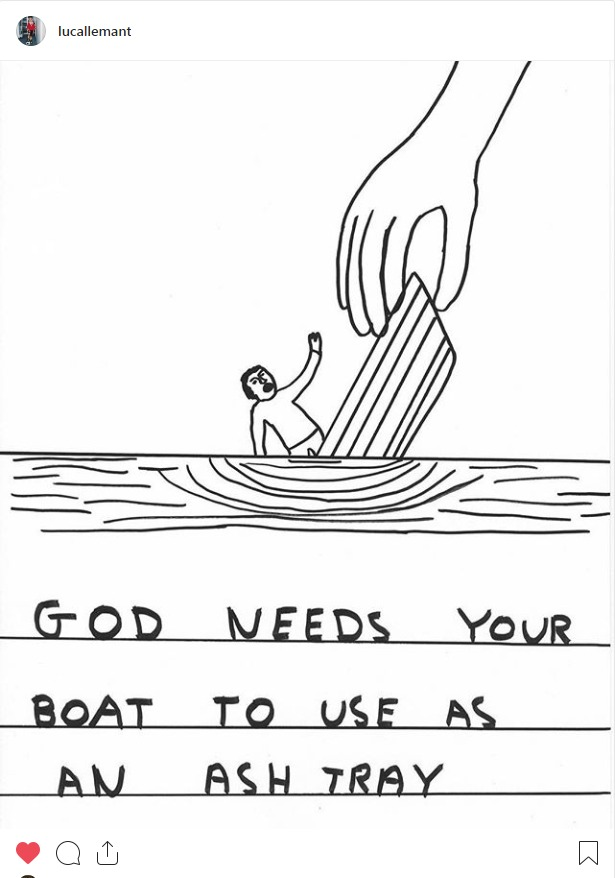 lucallemant
GOD NEEDS YOUR
BOAT TO USE AS
AN ASH TRAY